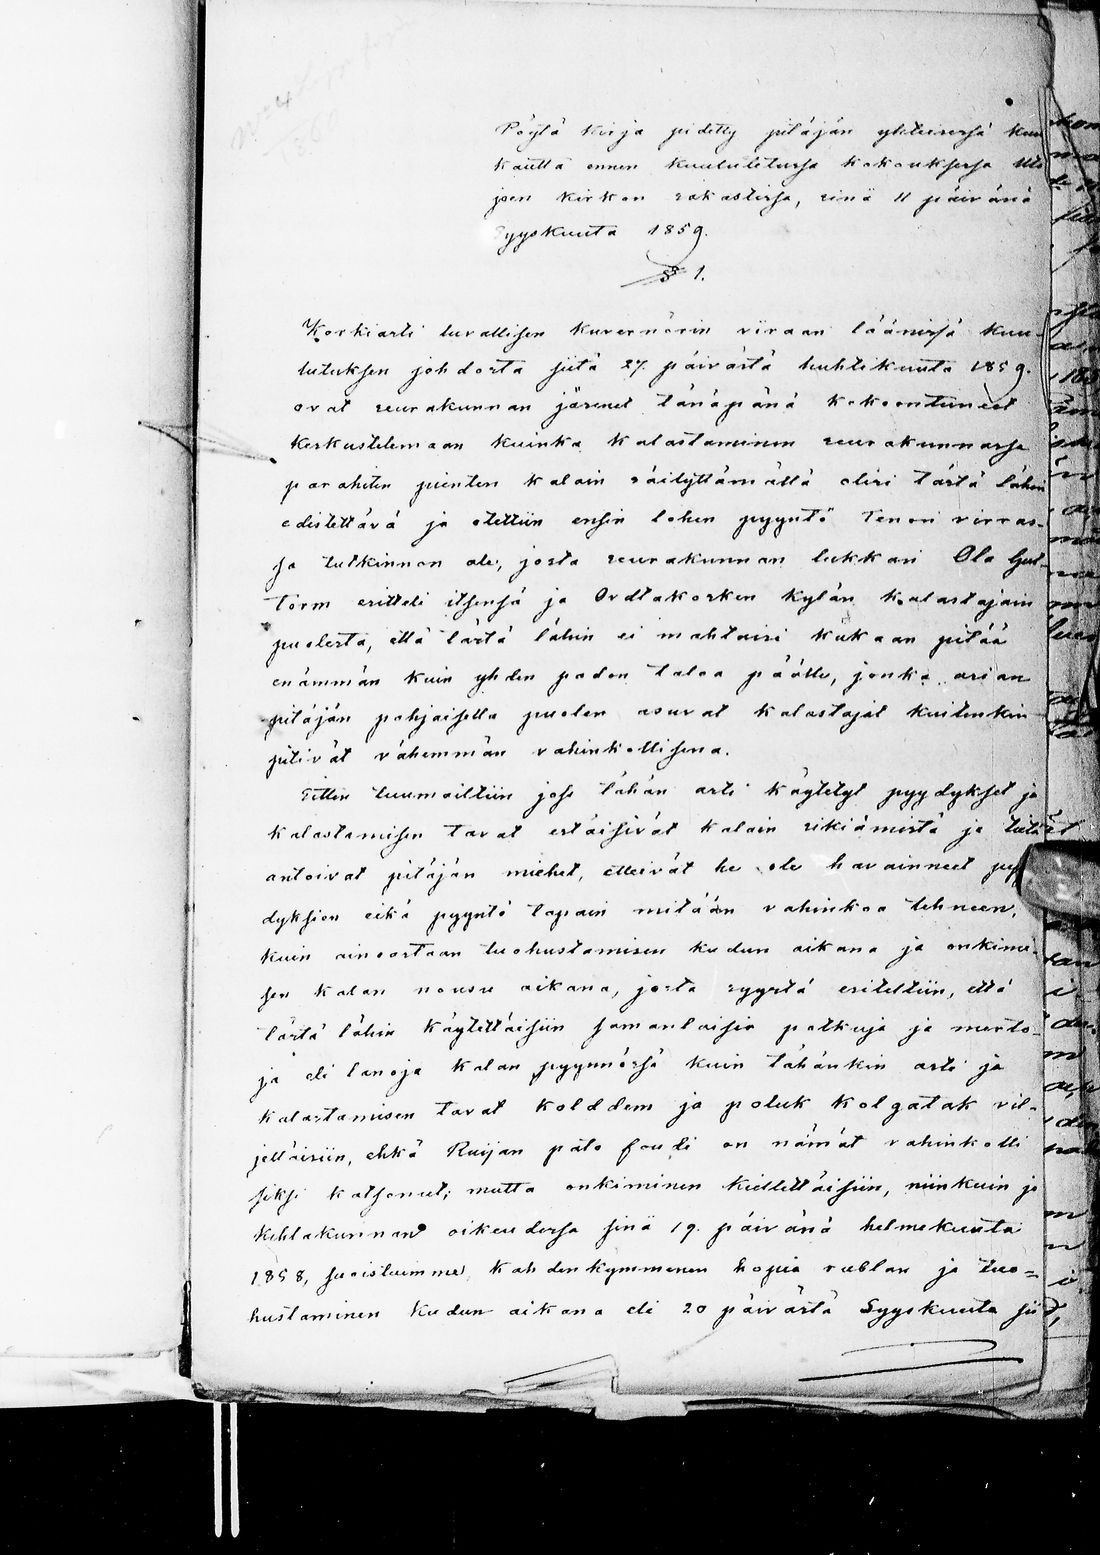 Pöytä kirja pidetty pitäjän yhteisessä kuu
kautta ennen kuulutetussa kokouksessa Uts
joen kirkon sakastissa, sinä 11 päivänä
Syyskuuta 1859.
§ 1.
Korkiasti luvallisen kuvernörin viraan läänissä kuu-
lutuksen johdosta siitä 27. päivästä huhtikuuta 1859.
ovat seurakunnan jäsenet tänäpänä kokoontuneet
keskustelemaan kuinka kalastaminen seurakunnassa
parahiten pienten kalain säilyttämällä olisi tästä lähin
edistettävä ja otettiin ensin lohen pyyntö Tenon virras-
sa tutkinnon ale, josta seurakunnan lukkari Ola Gut-
torm esitteli itsensä ja Ovdtakosken kylän kalastajain
puolesta, että tästä lähin ei mahtaisi kukaan pitää
enämmän kuin yhden padon taloa päälle, jonka asian
pitäjän pohjaisella puolen asuvat kalastajat kuitenkin
pitivät vähemmän vahinkollisena.
Sitten tuumailtiin jos tähän asti käytetyt pyydykset ja
kalastamisen tavat estäisivät kalain sikiämistä ja
antoivat pitäjän miehet, etteivät he ole havainneet pyy
dyksien eikä pyyntö tapain mitään vahinkoa tehneen,
kuin ainoastaan tuohustamisen kudun aikana ja onkimi-
sen kalan nousu aikana, josta syystä esiteltiin, että
tästä lähin käytettäisiin samanlaisia potkuja ja merto-
ja eli lanoja kalan pyynnössä kuin tähänkin asti ja
kalastamisen tavat kolddem ja poluk kolgatak vil-
jeltäisiin, ehkä Ruijan päle foudi on nämät vahinkolli
siksi katsonut; mutta onkiminen kiellettäisiin, niinkuin jo
kihlakunnan oikeudessa sinä 19. päivänä helmekuuta
1858, suostuimme, kahdenkymmenen hopia rublan ja tuo=
hustaminen kudun aikana eli 20 päivästä Syyskuuta sii